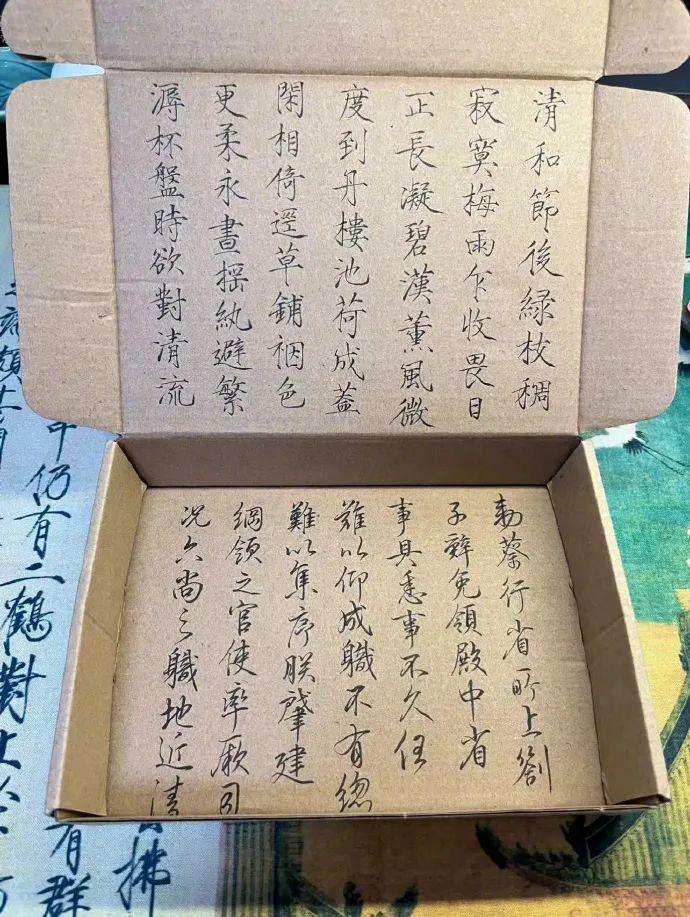 清和節後緑枝稠
寂寞梅雨乍收畏日
正長凝碧漢薰風微
度到丹樓池荷成蓋
閑相倚逕草鋪裀色
更柔永晝摇紈避繁
溽杯盤時欲對清流
勅蔡行省所上劄
子辭免領殿中省
事具悉事不久任
難以仰成職不有總
難以集序朕肇建
綱領之官使率厥司
况六尚之職地近清
拂
有群
中仍有二鶴對止
端頗